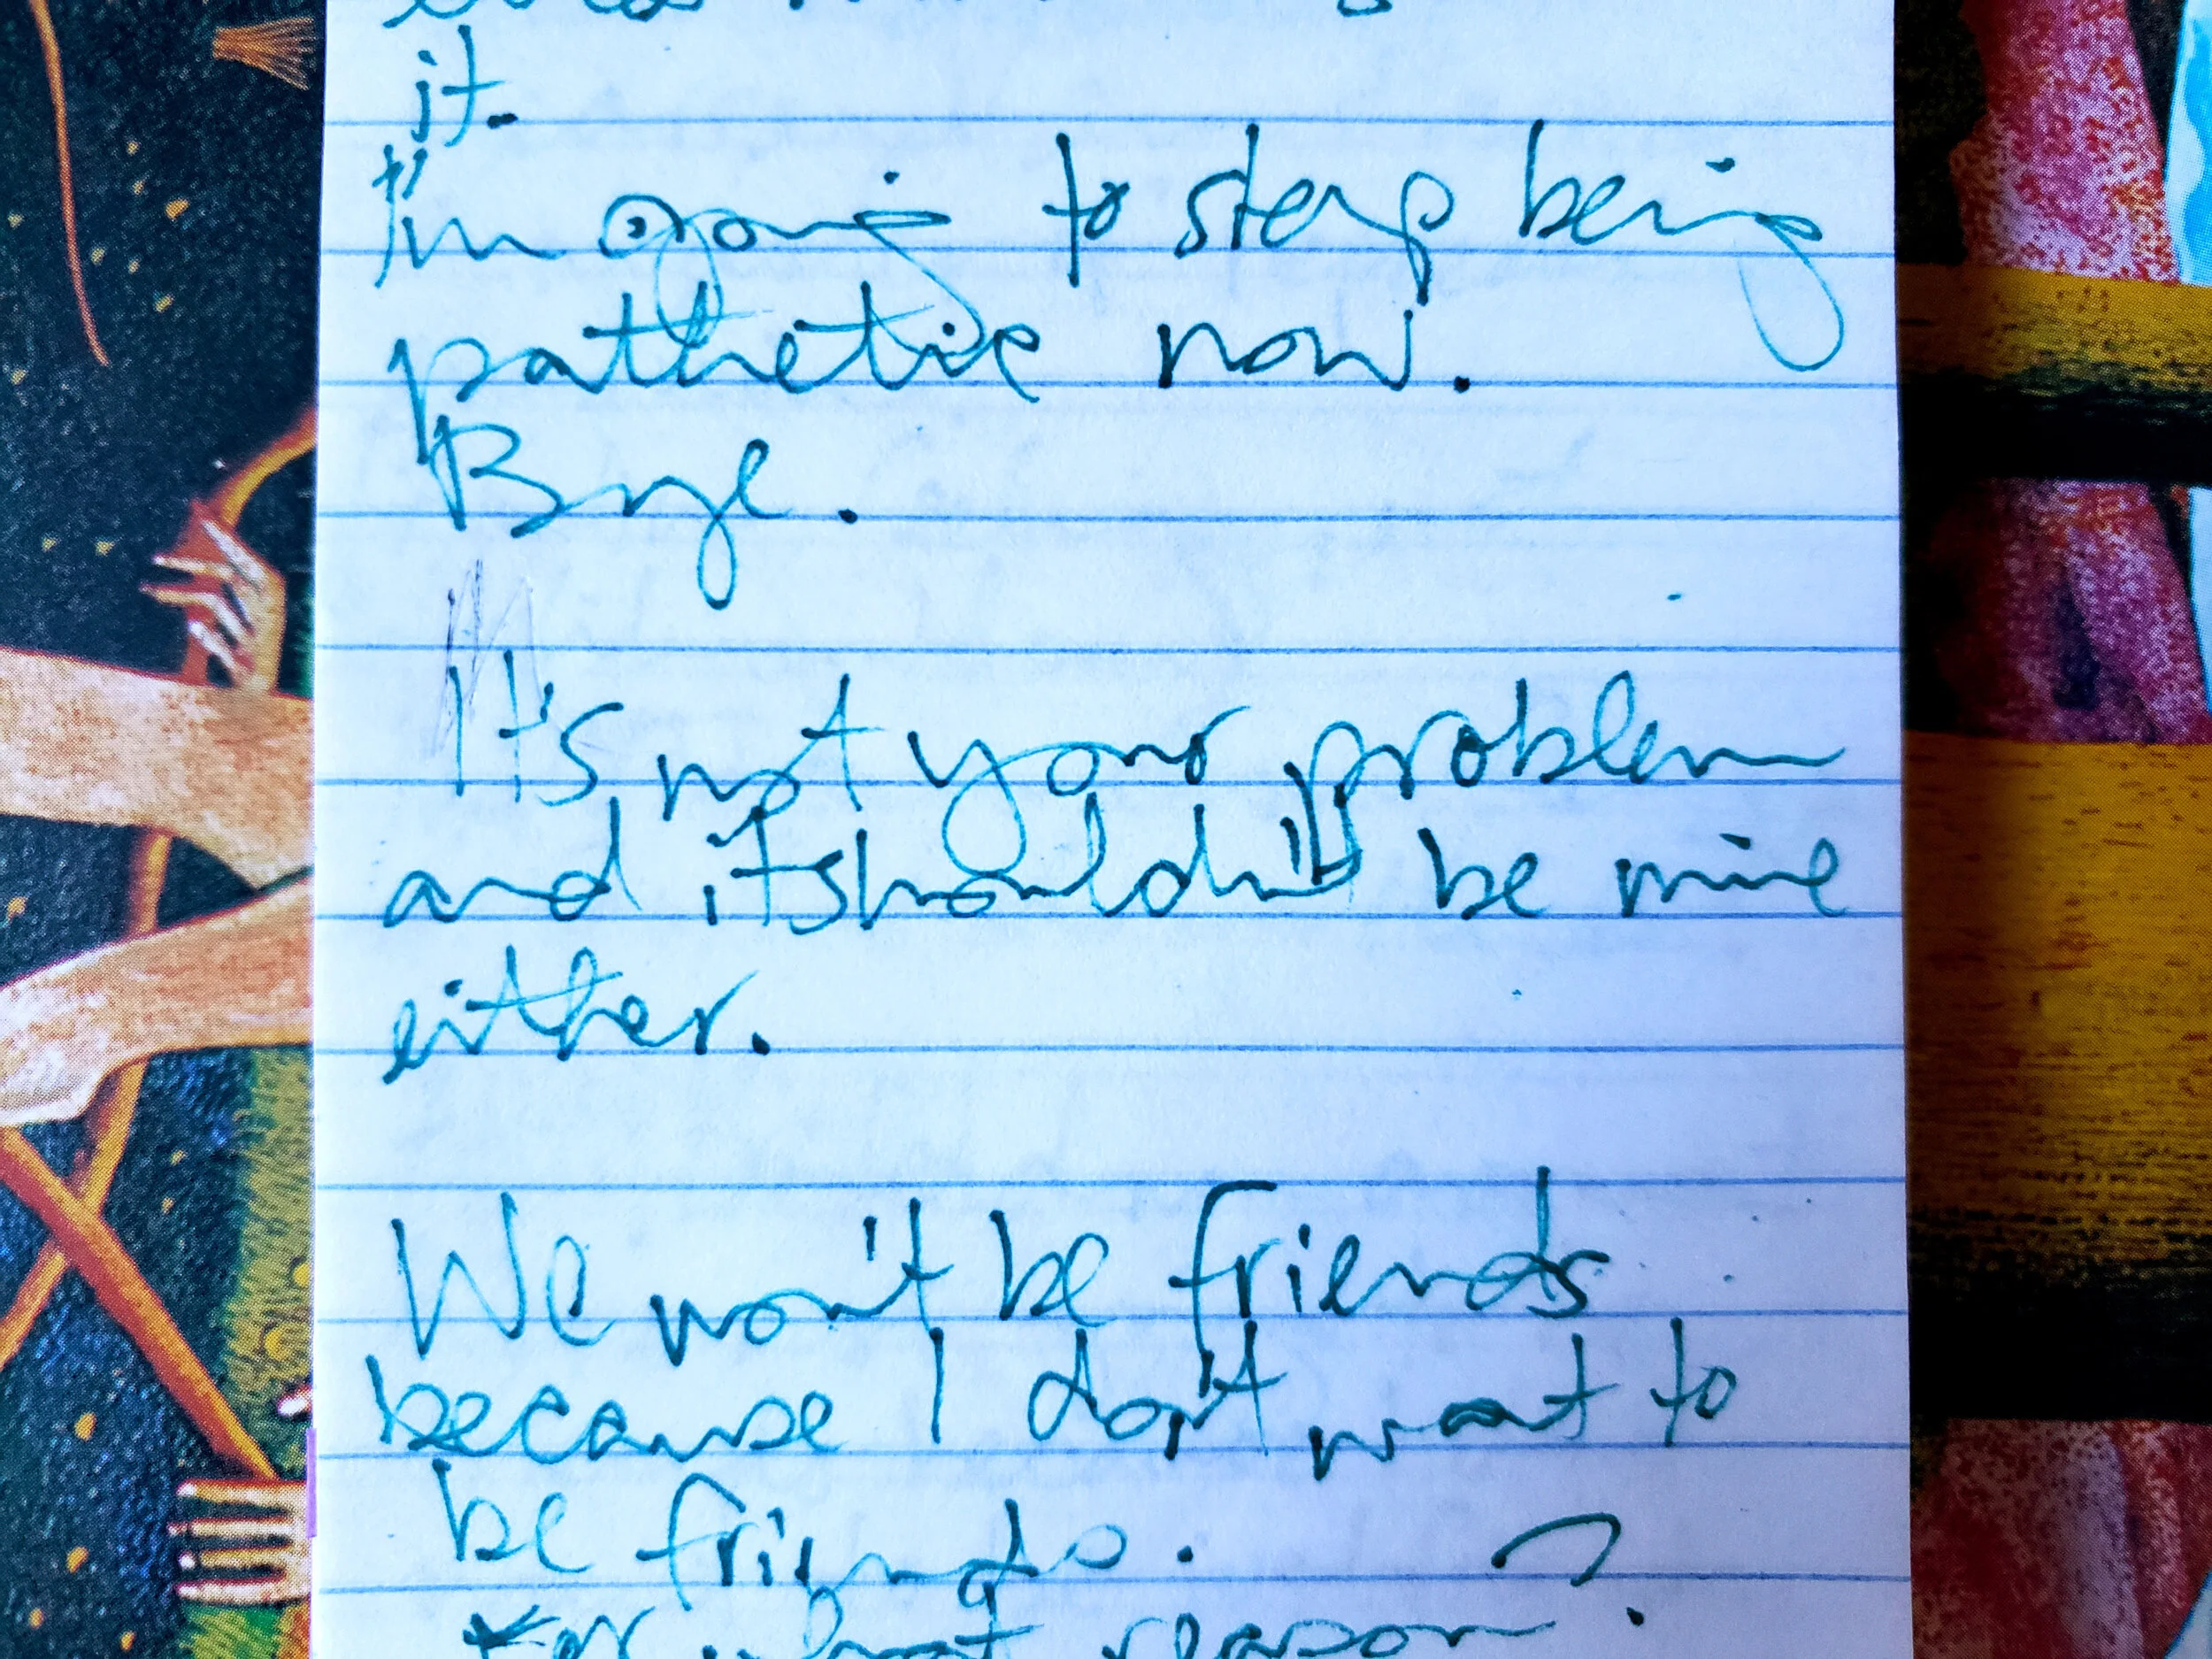 it.
I'm going to stop being
pathetic now.
Bye.
It's not your problem
and it shouldn't be mine
either.
We won't be friends
because I don't want to
be friends.
For what reason?